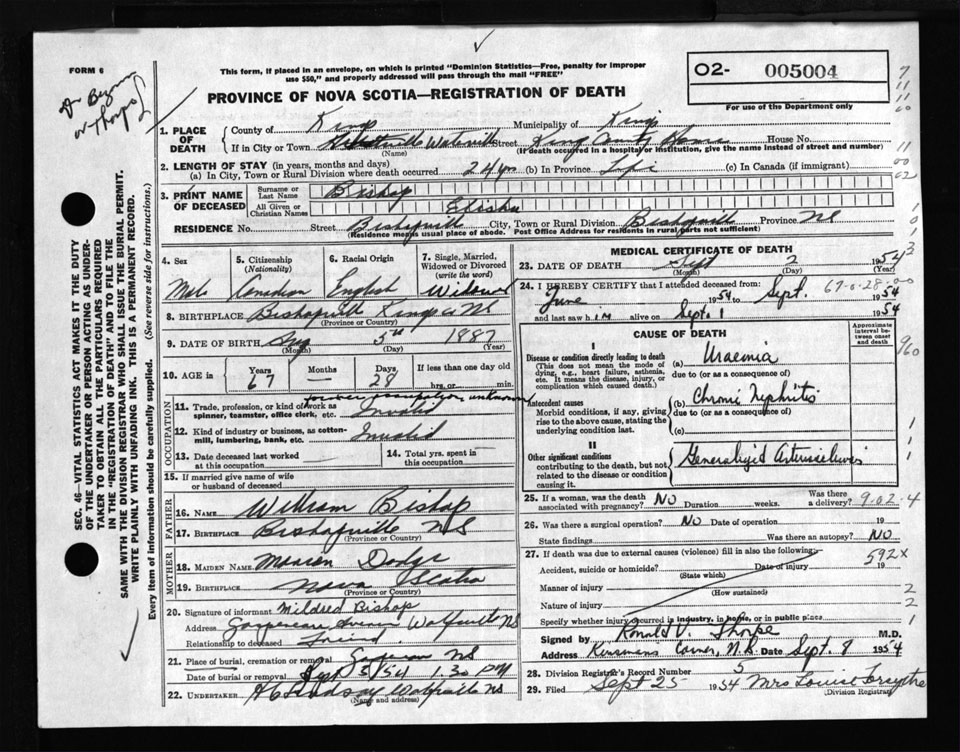 FORM 6
This form, if placed in an envelope, on which is printed "Dominion Statistics—Free, penalty for improper
use $50," and properly addressed will pass through the mail "FREE"
O2- 005004
PROVINCE OF NOVA SCOTIA—REGISTRATION OF DEATH
For use of the Department only
or Thorpe
1. PLACE OF DEATH
County of Kings Municipality of Kings
If in City or Town Waterville Street Kings County Home House No.
(Name) (If death occurred in a hospital or institution, give the name instead of street and number)
2. LENGTH OF STAY (in years, months and days)
(a) In City, Town or Rural Division where death occurred 24 yrs (b) In Province Life (c) In Canada (if immigrant)
3. PRINT NAME OF DECEASED
Surname or Last Name Bishop
All Given or Christian Names Elisha
RESIDENCE No. Street Bishopville City, Town or Rural Division Bishopville Province NS
(Residence means usual place of abode. Post Office Address for residents in rural parts not sufficient)
4. Sex Male
5. Citizenship (Nationality) Canadian
6. Racial Origin English
7. Single, Married, Widowed or Divorced (write the word) Widower
8. BIRTHPLACE Bishopville Kings Co NS
(Province or Country)
9. DATE OF BIRTH Aug 5th 1887
(Month) (Day) (Year)
10. AGE in Years 67 — Days 28 If less than one day
hrs. or min.
OCCUPATION
former occupation unknown
11. Trade, profession, or kind of work as spinner, teamster, office clerk, etc. Invalid
12. Kind of industry or business, as cotton-mill, lumbering, bank, etc. Invalid
13. Date deceased last worked at this occupation
14. Total yrs. spent in this occupation
15. If married give name of wife or husband of deceased
FATHER
16. NAME William Bishop
17. BIRTHPLACE Bishopville NS
(Province or Country)
MOTHER
18. MAIDEN NAME Dodge
19. BIRTHPLACE Nova Scotia
(Province or Country)
20. Signature of informant Mildred Bishop
Address Gaspereau Avenue Wolfville NS
Relationship to deceased Friend
21. Place of burial, cremation or removal Gaspereau NS
Date of burial or removal Sept 5/54 1.30 PM
22. UNDERTAKER Lindsay Wolfville NS
(Name and address)
MEDICAL CERTIFICATE OF DEATH
23. DATE OF DEATH Sept 2 1954
(Month) (Day) (Year)
24. I HEREBY CERTIFY that I attended deceased from:
67-0-28-00
June 1954 to Sept. 1954
and last saw him alive on Sept. 1 1954
CAUSE OF DEATH
Approximate interval between onset and death
I
Disease or condition directly leading to death
(This does not mean the mode of dying, e.g., heart failure, asthenia, etc. It means the disease, injury, or complication which caused death.)
(a) Uraemia
due to (or as a consequence of)
Antecedent causes
Morbid conditions, if any, giving rise to the above cause, stating the underlying condition last.
(b) Chronic Nephritis
due to (or as a consequence of)
(c)
II
Other significant conditions
contributing to the death, but not related to the disease or condition causing it.
Generalized Arteriosclerosis
25. If a woman, was the death associated with pregnancy? No Duration weeks. Was there a delivery?
9-02-4
26. Was there a surgical operation? No Date of operation 19
State findings Was there an autopsy? No
27. If death was due to external causes (violence) fill in also the following:
592X
Accident, suicide or homicide? Date of injury 19
(State which)
Manner of injury
(How sustained)
Nature of injury
Specify whether injury occurred in industry, in home, or in public place
Signed by Ronald V. Thorpe M.D.
Address Corner, N.S. Date Sept. 8 1954
28. Division Registrar's Record Number 5
29. Filed Sept 25 1954 Mrs Louise Forsythe
Division Registrar
SEC. 46—VITAL STATISTICS ACT MAKES IT THE DUTY
OF THE UNDERTAKER OR PERSON ACTING AS UNDERTAKER
TO OBTAIN ALL THE PARTICULARS REQUIRED
IN THE "REGISTRATION OF DEATH" AND TO FILE THE
SAME WITH THE DIVISION REGISTRAR WHO SHALL ISSUE THE BURIAL PERMIT.
WRITE PLAINLY WITH UNFADING INK. THIS IS A PERMANENT RECORD.
Every item of information should be carefully supplied. (See reverse side for instructions.)